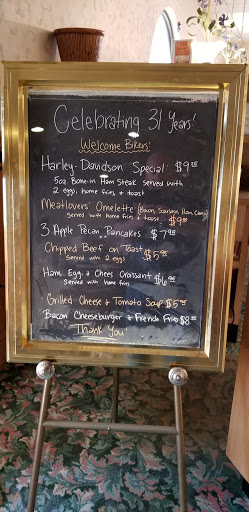 Celebrating 31 Years!
Welcome Bikers!
Harley-Davidson Special $9
5oz Bone-in Ham Steak served with
2 eggs, home fries + toast
Meatlovers' Omelette (Bacon, Sausage, Ham, Cheese)
Served with home fries + toast $9
3 Apple Pecan Pancakes $7
Chipped Beef on Toast
served with 2 eggs $5
Ham, Egg, + Chees Croissant
Served with home fries $6
Grilled Cheese + Tomato Soup $5
Bacon Cheeseburger + French Fries $8
Thank You!